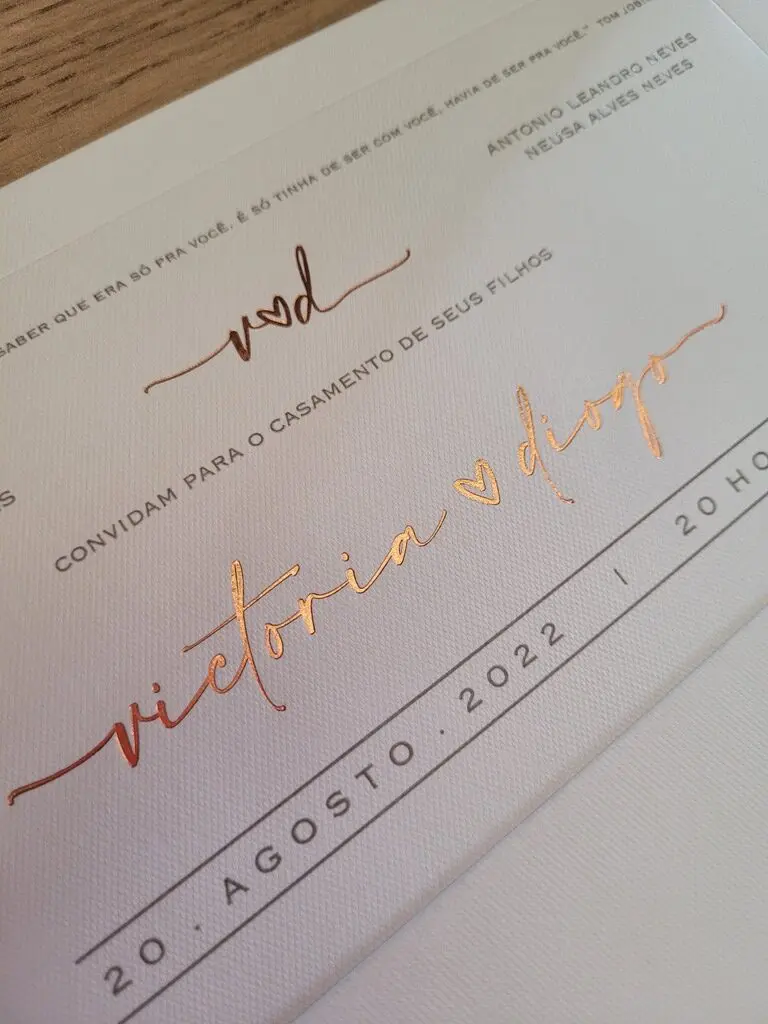 SABER QUE ERA SÓ PRA VOCÊ, É SÓ TINHA DE SER COM VOCÊ, HAVIA DE SER PRA VOCÊ." TOM JOBIM
ANTONIO LEANDRO NEVES
NEUSA ALVES NEVES
v♡d
CONVIDAM PARA O CASAMENTO DE SEUS FILHOS
victoria ♡ diogo
20 . AGOSTO . 2022 | 20 HO